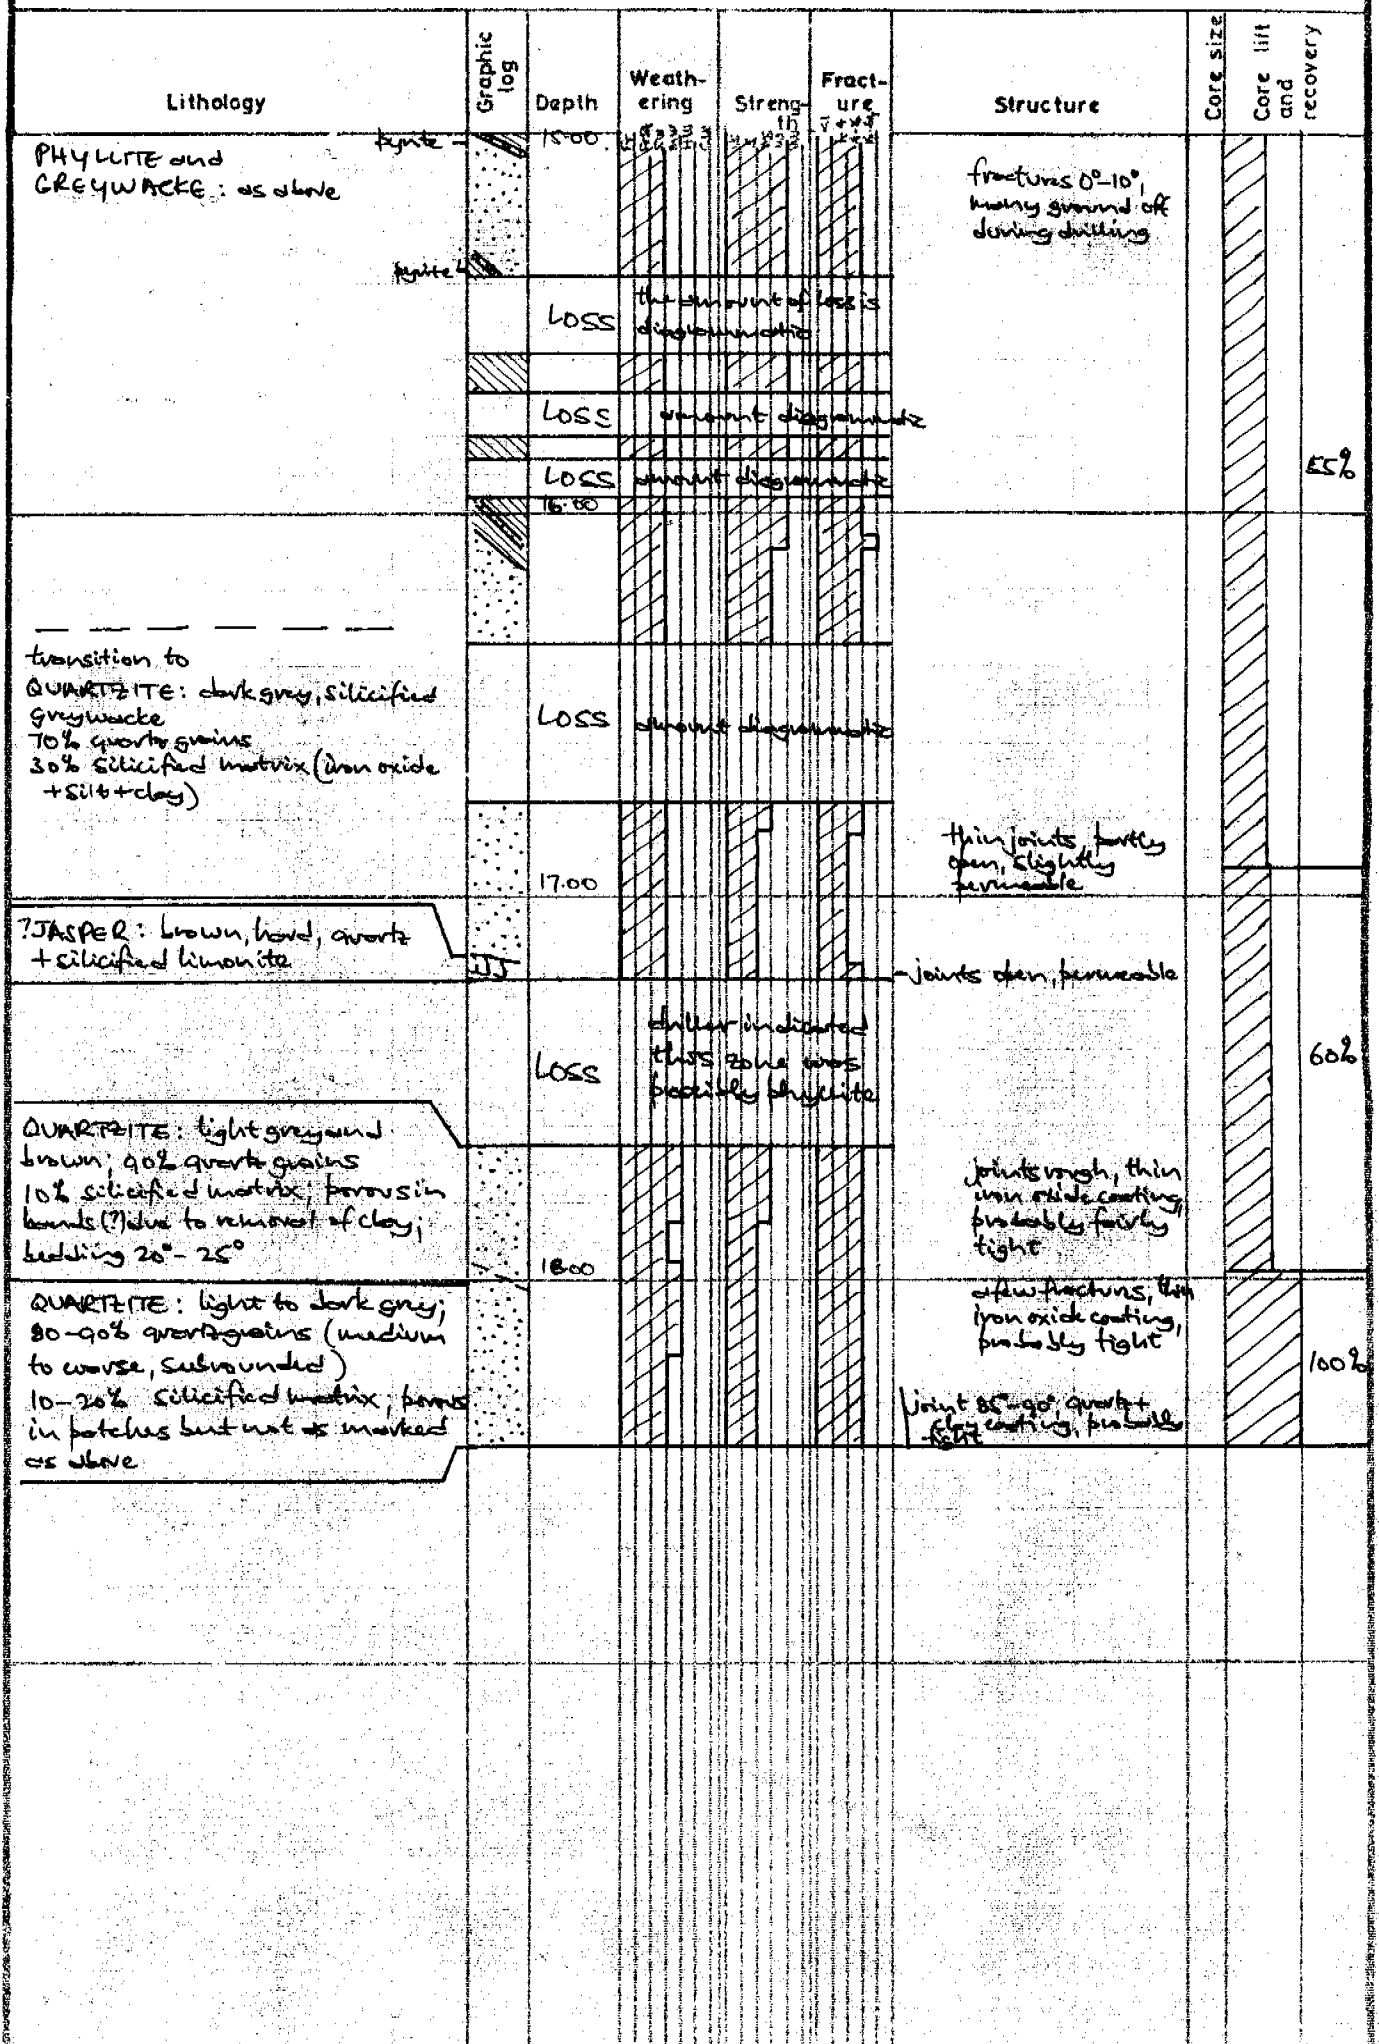 Lithology
Graphic log
Depth
Weath-
ering
Streng-
th
Fract-
ure
Structure
Core size
Core lift
and
recovery
PHYLLITE and
GREYWACKE: as above
pyrite
15.00
fractures 0°-10°,
many ground off
during drilling
pyrite
LOSS
the amount of loss is
diagrammatic
LOSS
amount diagrammatic
LOSS
amount diagrammatic
55%
16.00
transition to
QUARTZITE: dark grey, silicified
greywacke
70% quartz grains
30% silicified matrix (iron oxide
+silt+clay)
LOSS
amount diagrammatic
thin joints, partly
open, slightly
permeable
17.00
?JASPER: brown, hard, quartz
+ silicified limonite
JJ
-joints open, permeable
LOSS
driller indicated
this zone was
possibly phyllite
60%
QUARTZITE: light grey and
brown; 90% quartz grains
10% silicified matrix; porous in
bands(?) due to removal of clay;
bedding 20°-25°
joints rough, thin
iron oxide coating,
probably fairly
tight
18.00
QUARTZITE: light to dark grey;
80-90% quartz grains (medium
to coarse, subrounded)
10-20% silicified matrix; porous
in patches but not as marked
as above
a few fractures, thin
iron oxide coating,
probably tight
100%
joint 85°-90°, quartz+
clay coating, probably
tight